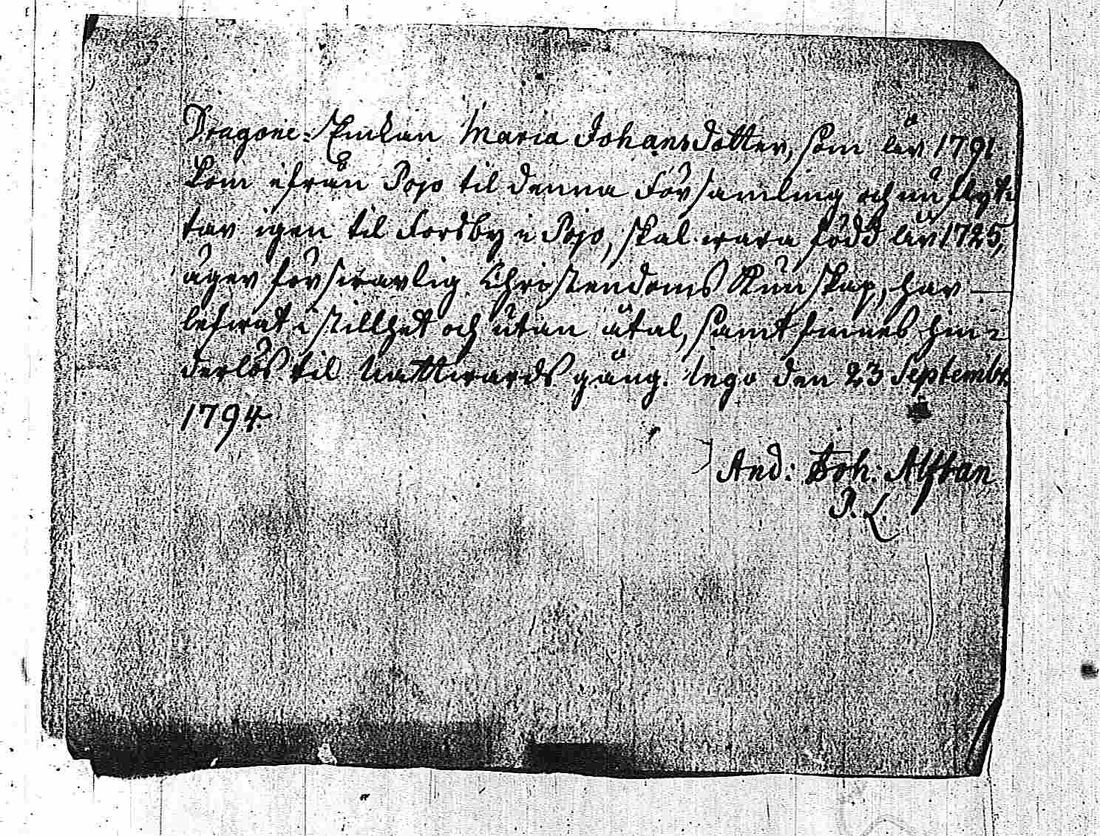 Dragone-Enkan Maria Johansdotter, som år 1791
kom ifrån Pojo til denna Församling och nu flyt-
tar igen til Forsby i Pojo, skal wara född år 1725,
äger förswarlig Christendoms Kunskap, har
lefwat i stillhet och utan åtal, samt finnes hin-
derlös til Nattwards gång. Ingo den 23 Septembr
1794.
And: Joh: Alftan
P. L.